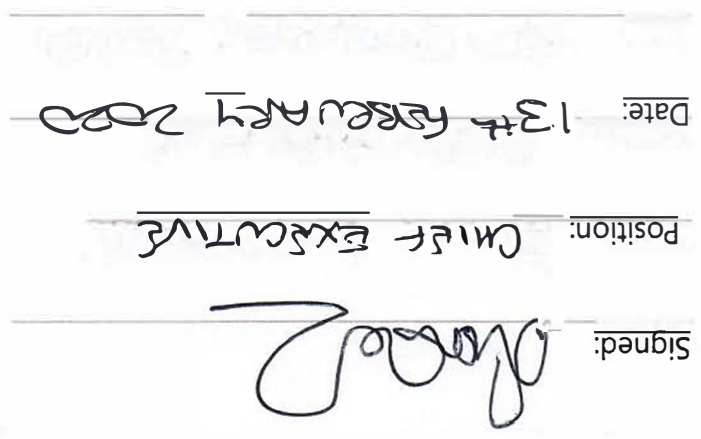 Signed:
Position: CHIEF EXECUTIVE
Date: 13th FEBRUARY 2020